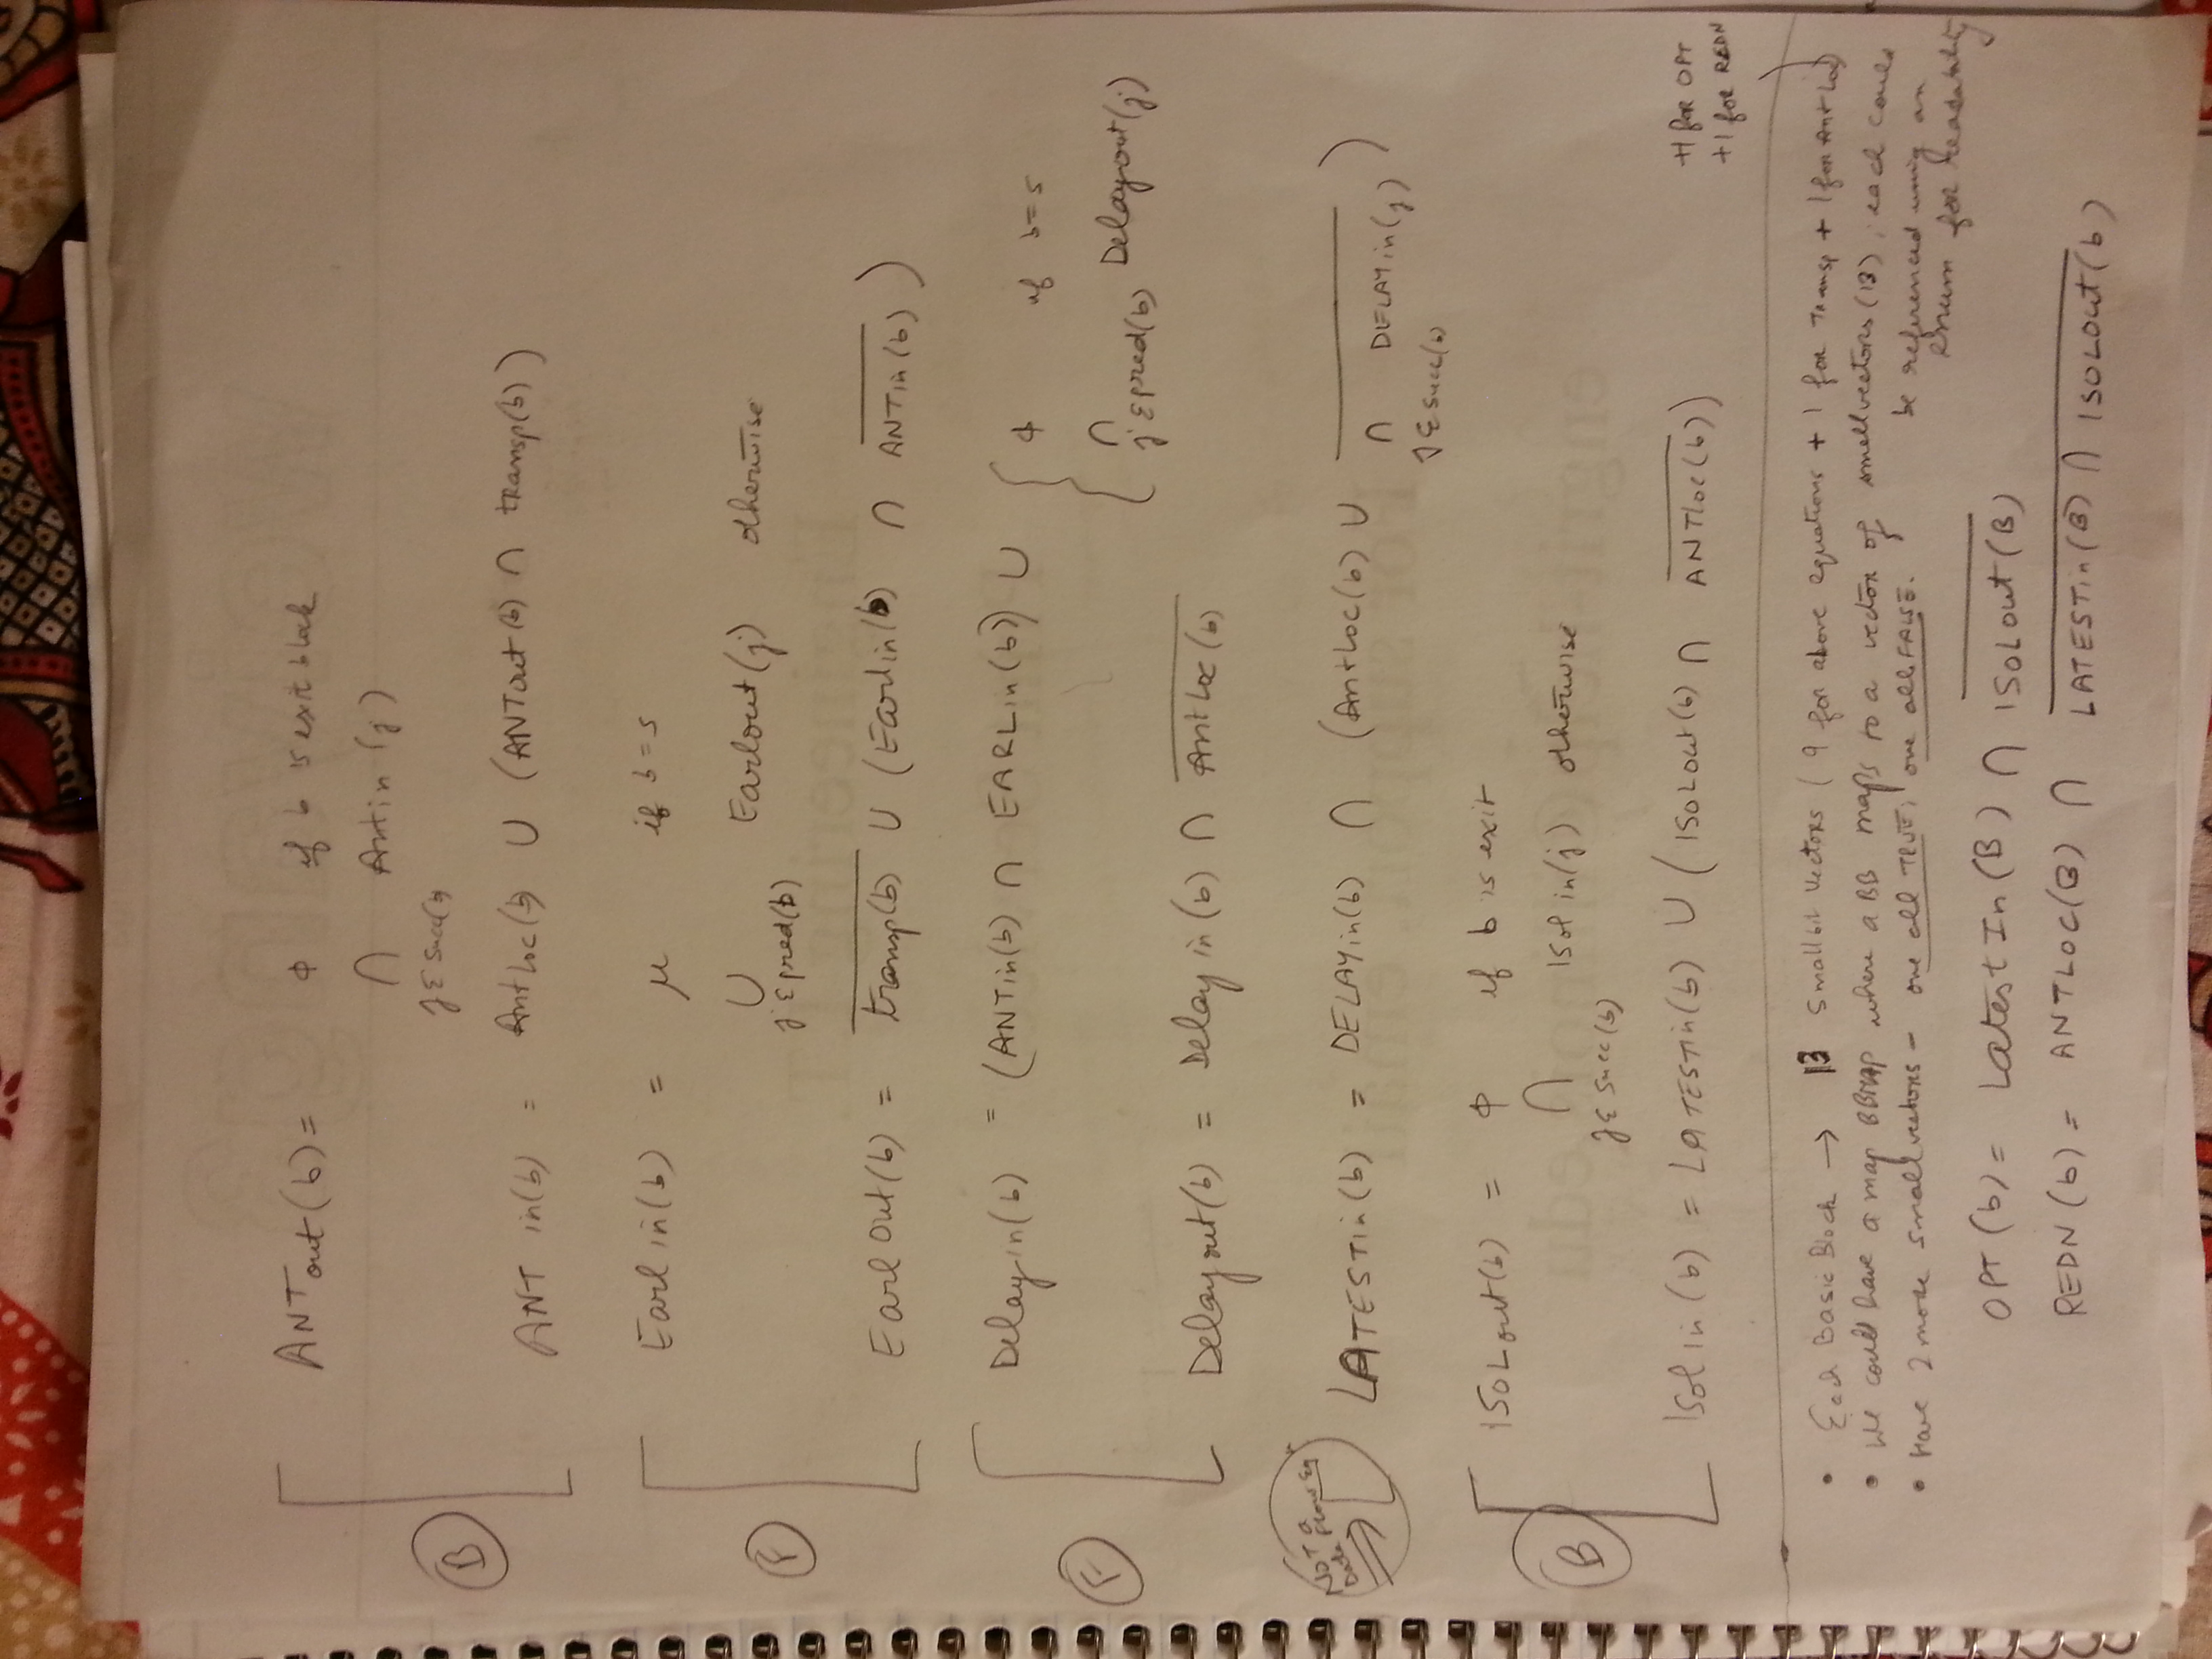 ANTout(b) = ϕ if b is exit block
∩ Antin(j)
j ε succ(b)
B
ANT in(b) = AntLoc(b) ∪ (ANTout(b) ∩ transp(b))
Earl in(b) = μ if b = s
∪ Earlout(j) otherwise
j ε pred(b)
F
Earl Out(b) = \overline{transp(b)} ∪ (Earlin(b) ∩ \overline{ANTin(b)})
Delayin(b) = (ANTin(b) ∩ EARLin(b)) ∪ { ϕ if b = s
∩ Delayout(j)
j ε pred(b)
F
Delayout(b) = Delay in(b) ∩ \overline{AntLoc(b)}
NOT a
Data Flow Eqn
LATESTin(b) = DELAYin(b) ∩ (AntLoc(b) ∪ \overline{∩ DELAYin(j)})
j ε succ(b)
ISOLout(b) = ϕ if b is exit
∩ Isol in(j) otherwise
j ε succ(b)
B
Isol in(b) = LATESTin(b) ∪ (ISOLout(b) ∩ \overline{ANTloc(b)})
+1 for OPT
+1 for REDN
• Each Basic Block → 13 Smallbit Vectors ( 9 for above equations + 1 for Transp + 1 for Ant Loc)
• We could have a map BBMAP where a BB maps to a vector of smallvectors (13), each could
be referenced using an
enum for readability
• Have 2 more smallvectors - one all TRUE, one all FALSE.
OPT(b) = Latest In(B) ∩ \overline{ISOLout(B)}
REDN(b) = ANTLOC(B) ∩ \overline{LATESTin(B) ∩ ISOLOut(b)}